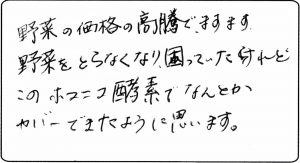 野菜の価格の高騰でますます
野菜をとらなくなり、困っていたけれど
このホコニコ酵素でなんとか
カバーできたように思います。